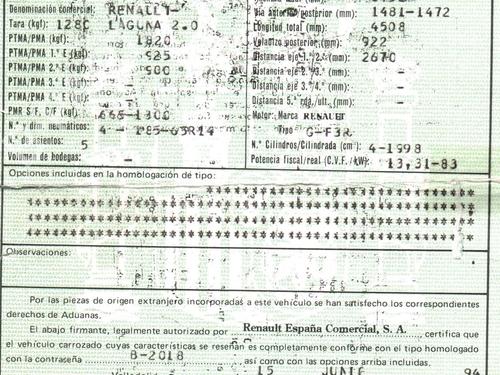 Denominación comercial: RENAULT-
Tara (kgf): 128C LAGUNA 2.0
PTMA/PMA (kgf): 1820
PTMA/PMA 1.º E (kgf): 925
PTMA/PMA 2.º E (kgf): 900
PTMA/PMA 3.º E (kgf): -
PTMA/PMA 4.º E (kgf): -
PMR S/F, C/F (kgf): 665-1300
N.º y dim. neumáticos: 4 - 185-65R14
N.º de asientos: 5
Volumen de bodegas: -
Vía anterior/posterior (mm): 1481-1472
Longitud total (mm): 4508
Voladizo posterior (mm): 922
Distancia eje 1.º 2.º (mm): 2670
Distancia eje 2.º 3.º (mm): -
Distancia eje 3.º 4.º (mm): -
Distancia 5.ª rda. ult. (mm): -
Motor: Marca RENAULT
Tipo G-F3R
N.º Cilindros/Cilindrada (cm³): 4-1998
Potencia fiscal/real (C.V.F./kW): 13,31-83
Opciones incluidas en la homologación de tipo:
Observaciones:
Por las piezas de origen extranjero incorporadas a este vehículo se han satisfecho los correspondientes
derechos de Aduanas.
El abajo firmante, legalmente autorizado por Renault España Comercial, S. A. certifica que
el vehículo carrozado cuyas características se reseñan es completamente conforme con el tipo homologado
con la contraseña B-2018 así como con las opciones arriba incluidas.
15 JUNIO 94